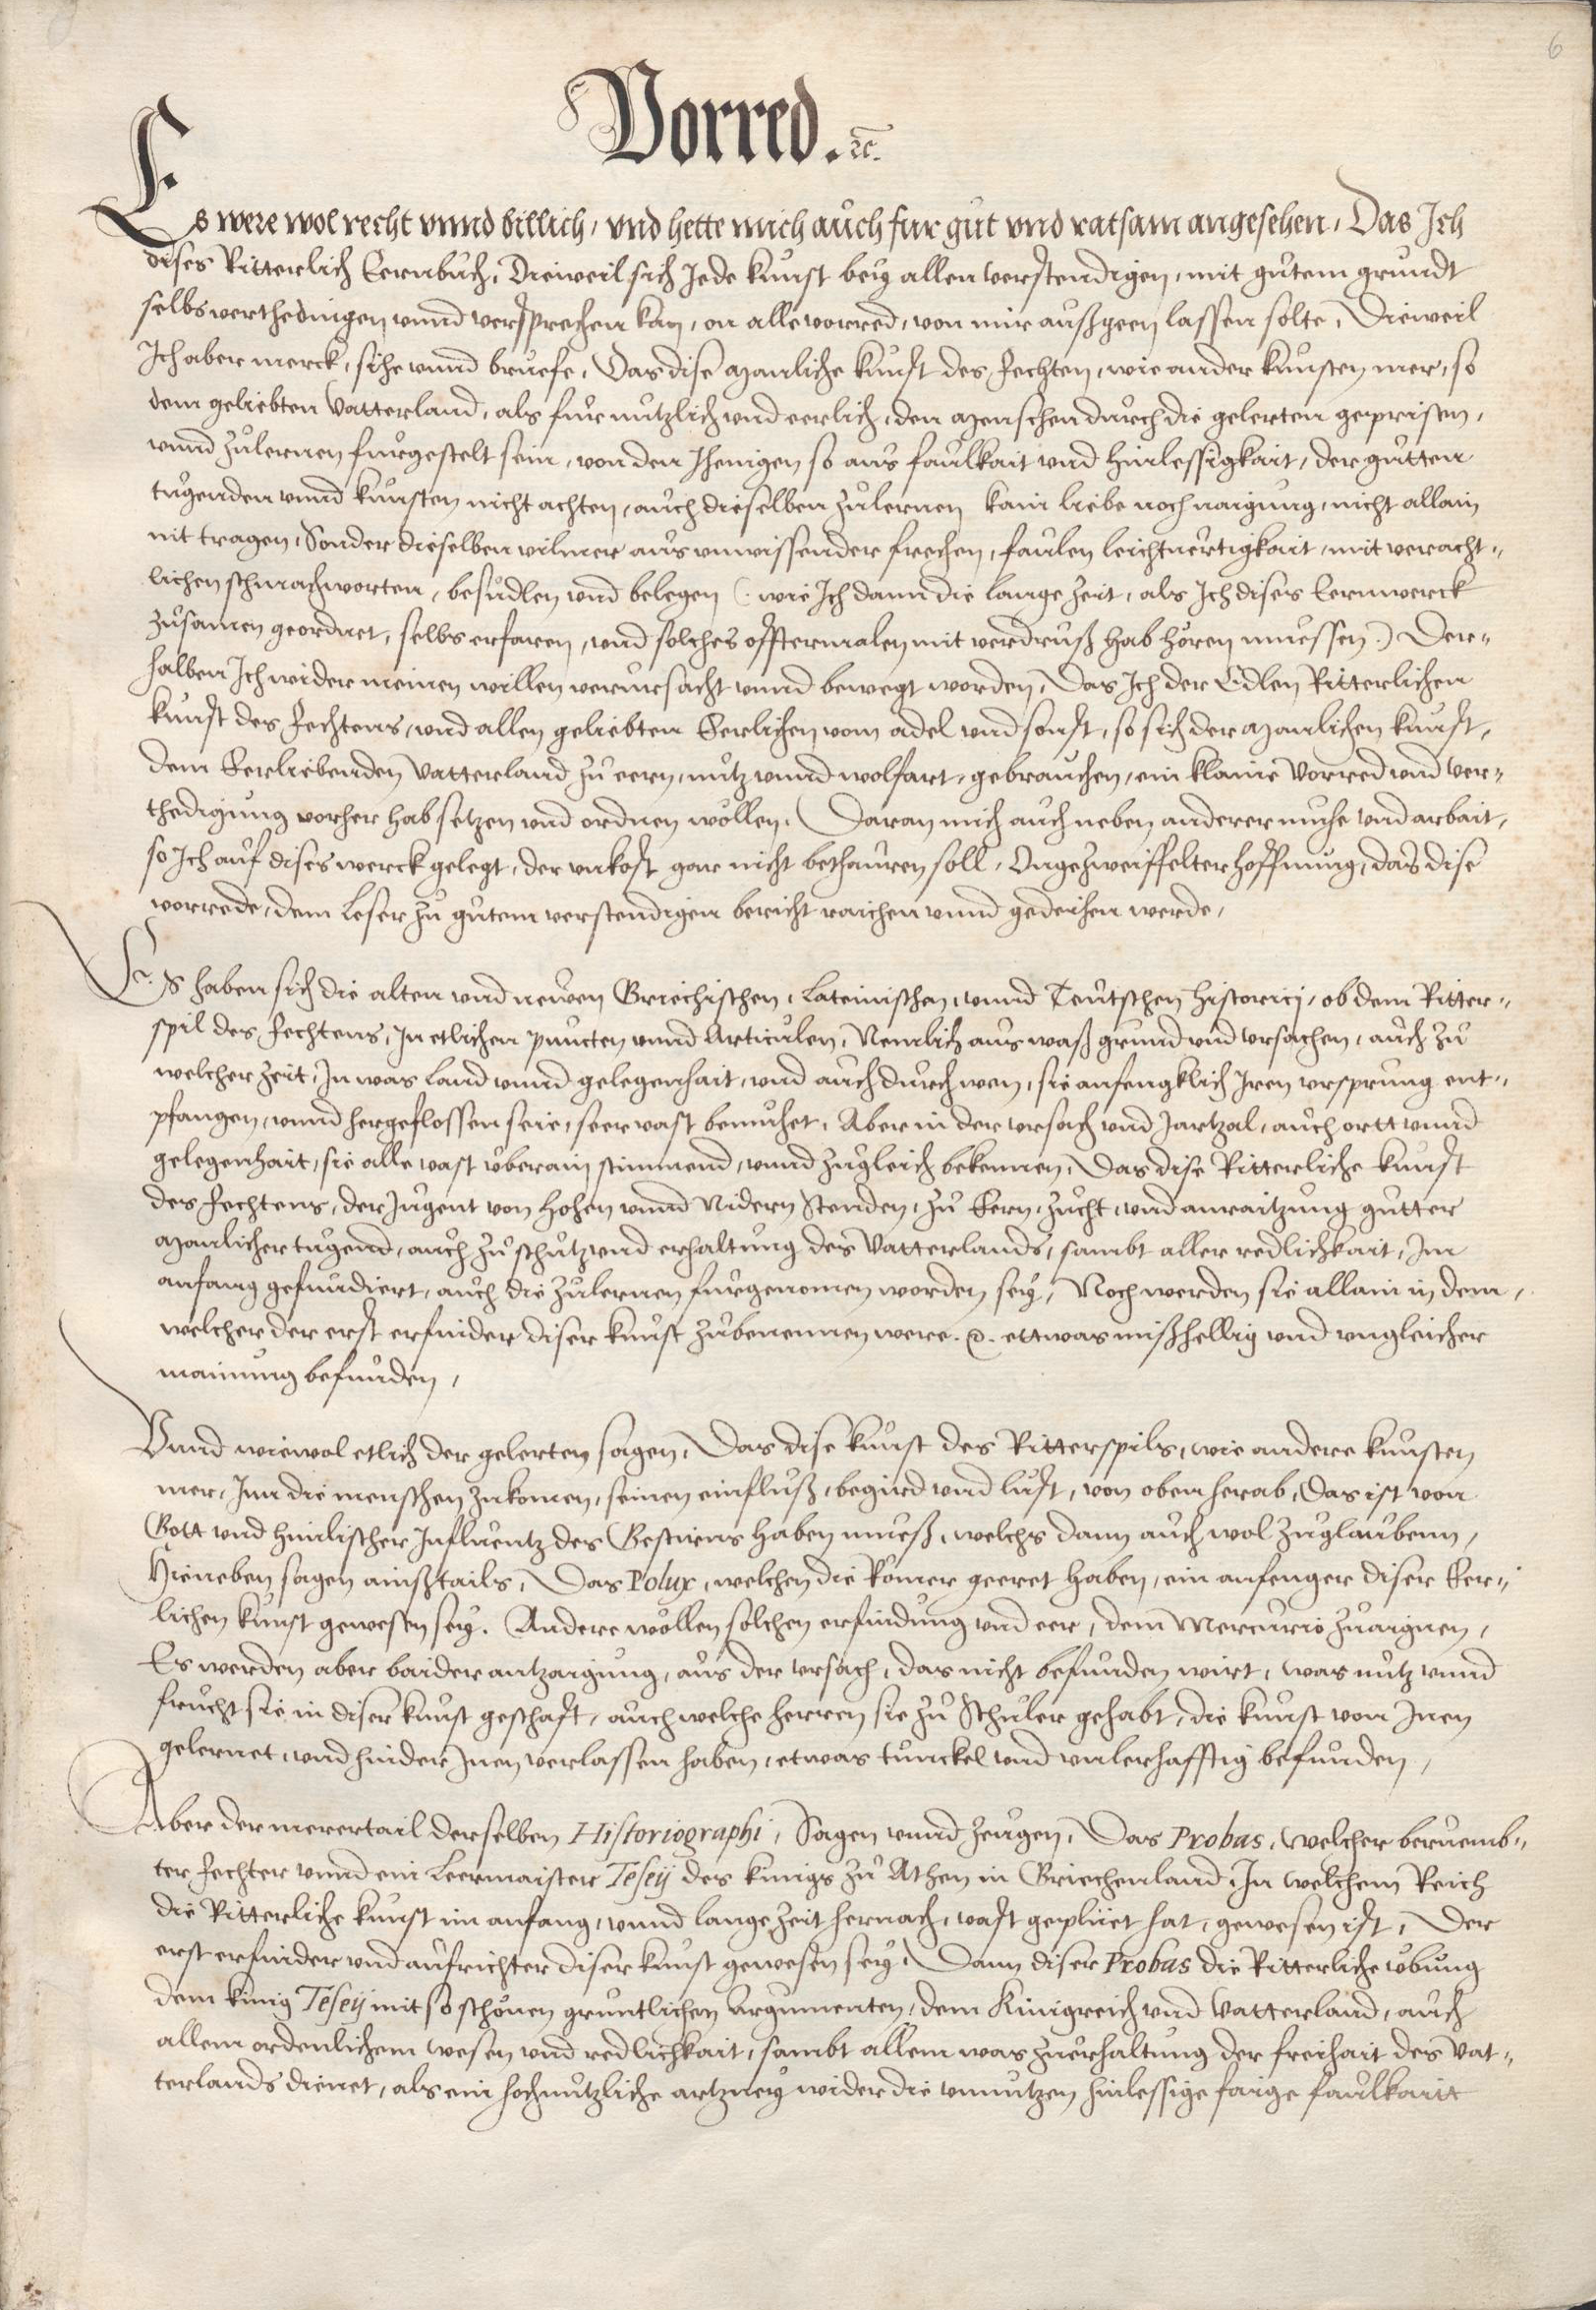 6
Vorred. ꝛc.
Es were wol recht vnnd billich, vnd hette mich auch fur gut vnd ratsam angesehen, Das Ich
dises Ritterlich Eernbuch, Dieweil sich Jede kunst bey allen verstendigen, mit gutem grundt
selbs verthedingen vnnd versprechen kan, on alle vorred, von mir außgeen lassen solte, Dieweil
Ich aber merck, sihe vnnd bruefe, Das dise manliche kunst des Fechten, wie ander kunsten mer, so
dem geliebten Vatterland, als fur nutzlich vnd eerlich, den menschen durch die gelerten geprisen,
vnnd zulernen furgestelt sein, von den Jhenigen so aus faulkait vnd hinlessigkait, der gutten
tugenden vnnd kunsten nicht achten, auch dieselben zulernen kain liebe noch naigung, nicht allain
nit tragen, Sonder dieselben vilmer aus vnwissender frechen, faulen leichtuertigkait, mit veracht-
lichen schmachworten, besudlen vnd belegen (: wie Ich dann die lange zeit, als Ich dises Eernwerck
zusamen geordnet, selbs erfaren, vnd solches offtermalen mit verdruß hab hören muessen :) Der-
halben Ich wider meinen willen verursacht vnnd bewegt worden, Das Ich der Edlen Ritterlichen
kunst des Fechtens, vnd allen geliebten Eerlichen vom adel vnd sonst, so sich der manlichen kunst,
dem Eerliebenden Vatterland zu eern, nutz vnnd wolfart, gebrauchen, ein klaine Vorred vnd Ver-
thedigung vorher hab setzen vnd ordnen wöllen. Daran mich auch neben anderer muhe vnd arbait,
so Ich auf dises werck gelegt, der vnkost gar nicht bethauren soll, Ongezweiffelter hoffnung, das dise
vorrede, dem Leser zu gutem verstendigen bericht raichen vnnd gedeihen werde,
Es haben sich die alten vnd neuen Griechischen, Lateinischen, vnnd Teutschen Historicj, ob dem Ritter-
spil des Fechtens, In etlichen puncten vnnd Articulen, Nemlich aus waß grund vnd vrsachen, auch zu
welcher zeit, In was Land vnnd gelegenhait, vnd auch durch wen, sie anfengklich Iren vrsprung ent-
pfangen, vnnd hergeflossen seie, seer vast bemuhet, Aber in der vrsach vnd Jartzal, auch ortt vnnd
gelegenhait, sie alle vast uberain stimmend, vnnd zugleich bekennen, Das dise Ritterliche kunst
des Fechtens, der Jugent von Hohen vnnd Nidern Stenden, zu Eern, zucht, vnd anraitzung gutter
manlicher tugend, auch zu schutz vnd erhaltung des Vatterlands, sambt aller redlichkait, Im
anfang gefundiert, auch die zulernen furgenomen worden sey, Noch werden sie allain in dem,
welcher der erst erfinder diser kunst zubenennen were. ꝛc. ettwas mißhellig vnd vngleicher
mainung befunden,
Vnnd wiewol etlich der gelerten sagen, Das dise kunst des Ritterspils, wie andere kunsten
mer, Inn die menschen zukomen, seinen einfluß, begird vnd lust, von oben herab, das ist von
Gott vnd himlischer Influentz des Gestirns haben mueß, welchs dann auch wol zuglauben,
Hieneben sagen ainßtails, Das Polux, welchen die Römer geeret haben, ein anfenger diser Eer-
lichen kunst gewesen sey. Andere wöllen solchen erfindung vnd eer, dem Mercurio zuaignen,
Es werden aber baider antzaigung, aus der vrsach, das nicht befunden wirt, was nutz vnnd
frucht sie in diser kunst geschaft, auch welche herren sie zu Schuler gehabt, die kunst von Inen
gelernet, vnd hinder Inen verlassen haben, etwas tunckel vnd vnlerhafftig befunden,
Aber der merertail derselben Historiographi, Sagen vnnd zeugen, Das Probas, welcher beruemb-
ter Fechter vnnd ein Leermaister Tesey des kunigs zu Athen in Griechenland, In welchem Reich
die Ritterliche kunst im anfang, vnnd lange zeit hernach, vast gepluet hat, gewesen ist, Der
erst erfinder vnd aufrichter diser kunst gewesen sey, Dann diser Probas die Ritterliche ubung
dem kinig Tesey mit so schönen gruntlichen Argumenten, dem Kinigreich vnd Vatterland, auch
allem ordenlichem wesen vnd redlichkait, sambt allem was zuerhaltung der freihait des Vat-
terlands dienet, als ein hochnutzliche artzney wider die vnnutzen hinlessige faige faulkaitt